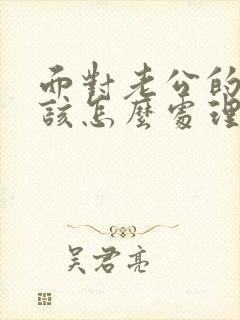 面對老公的
該怎麼處理
吳君亮